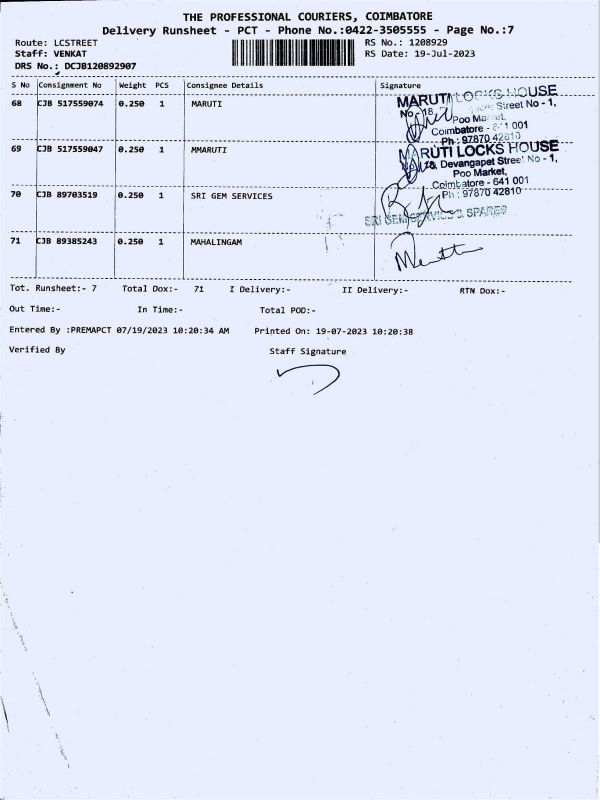 THE PROFESSIONAL COURIERS, COIMBATORE
Delivery Runsheet - PCT - Phone No.:0422-3505555 - Page No.:7
Route: LCSTREET RS No.: 1208929
Staff: VENKAT RS Date: 19-Jul-2023
DRS No.: DCJB120892907
S No Consignment No Weight PCS Consignee Details Signature
68 CJB 517559074 0.250 1 MARUTI
MARUTI LOCKS HOUSE
No. 18, Street No - 1,
Poo Market,
Coimbatore - 641 001
Ph : 97870 42810
69 CJB 517559047 0.250 1 MMARUTI
MARUTI LOCKS HOUSE
No. 18, Devangapet Street No - 1,
Poo Market,
Coimbatore - 641 001
Ph : 97870 42810
70 CJB 89703519 0.250 1 SRI GEM SERVICES
SRI GEM SERVICES SPARES
71 CJB 89385243 0.250 1 MAHALINGAM
Tot. Runsheet:- 7 Total Dox:- 71 I Delivery:- II Delivery:- RTN Dox:-
Out Time:- In Time:- Total POD:-
Entered By :PREMAPCT 07/19/2023 10:20:34 AM Printed On: 19-07-2023 10:20:38
Verified By Staff Signature